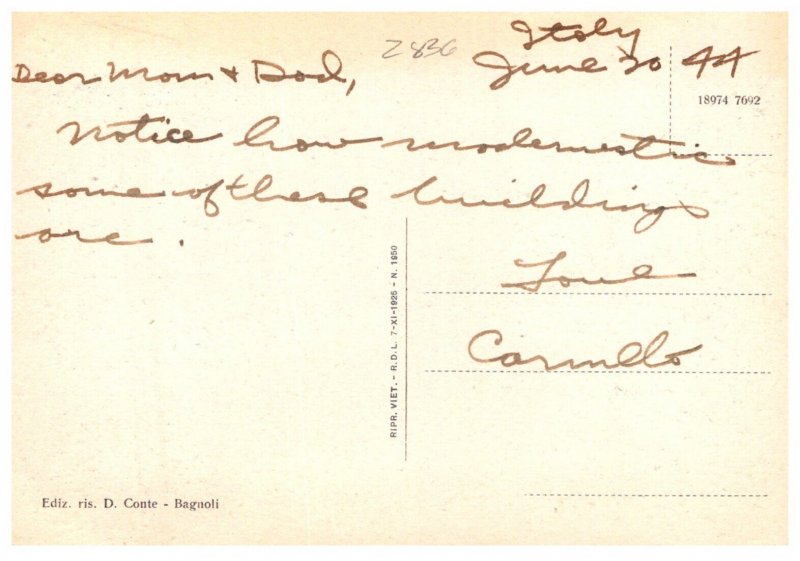 2836
Italy
June 30 44
Dear Mom & Dad,
18974 7692
Notice how modernestric
some of these buildings
are.
Love
Carmelo
RIPR. VIET. - R.D.L. 7-XI-1925 - N. 1950
Ediz. ris. D. Conte - Bagnoli